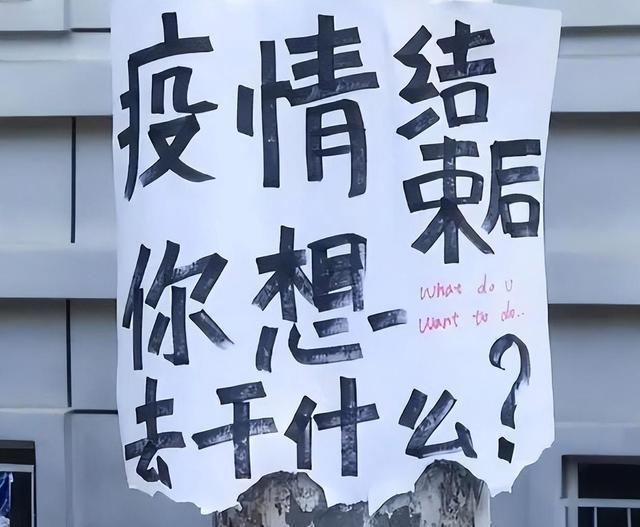 疫情结
束后
你想
what do u
want to do..
去干什么?